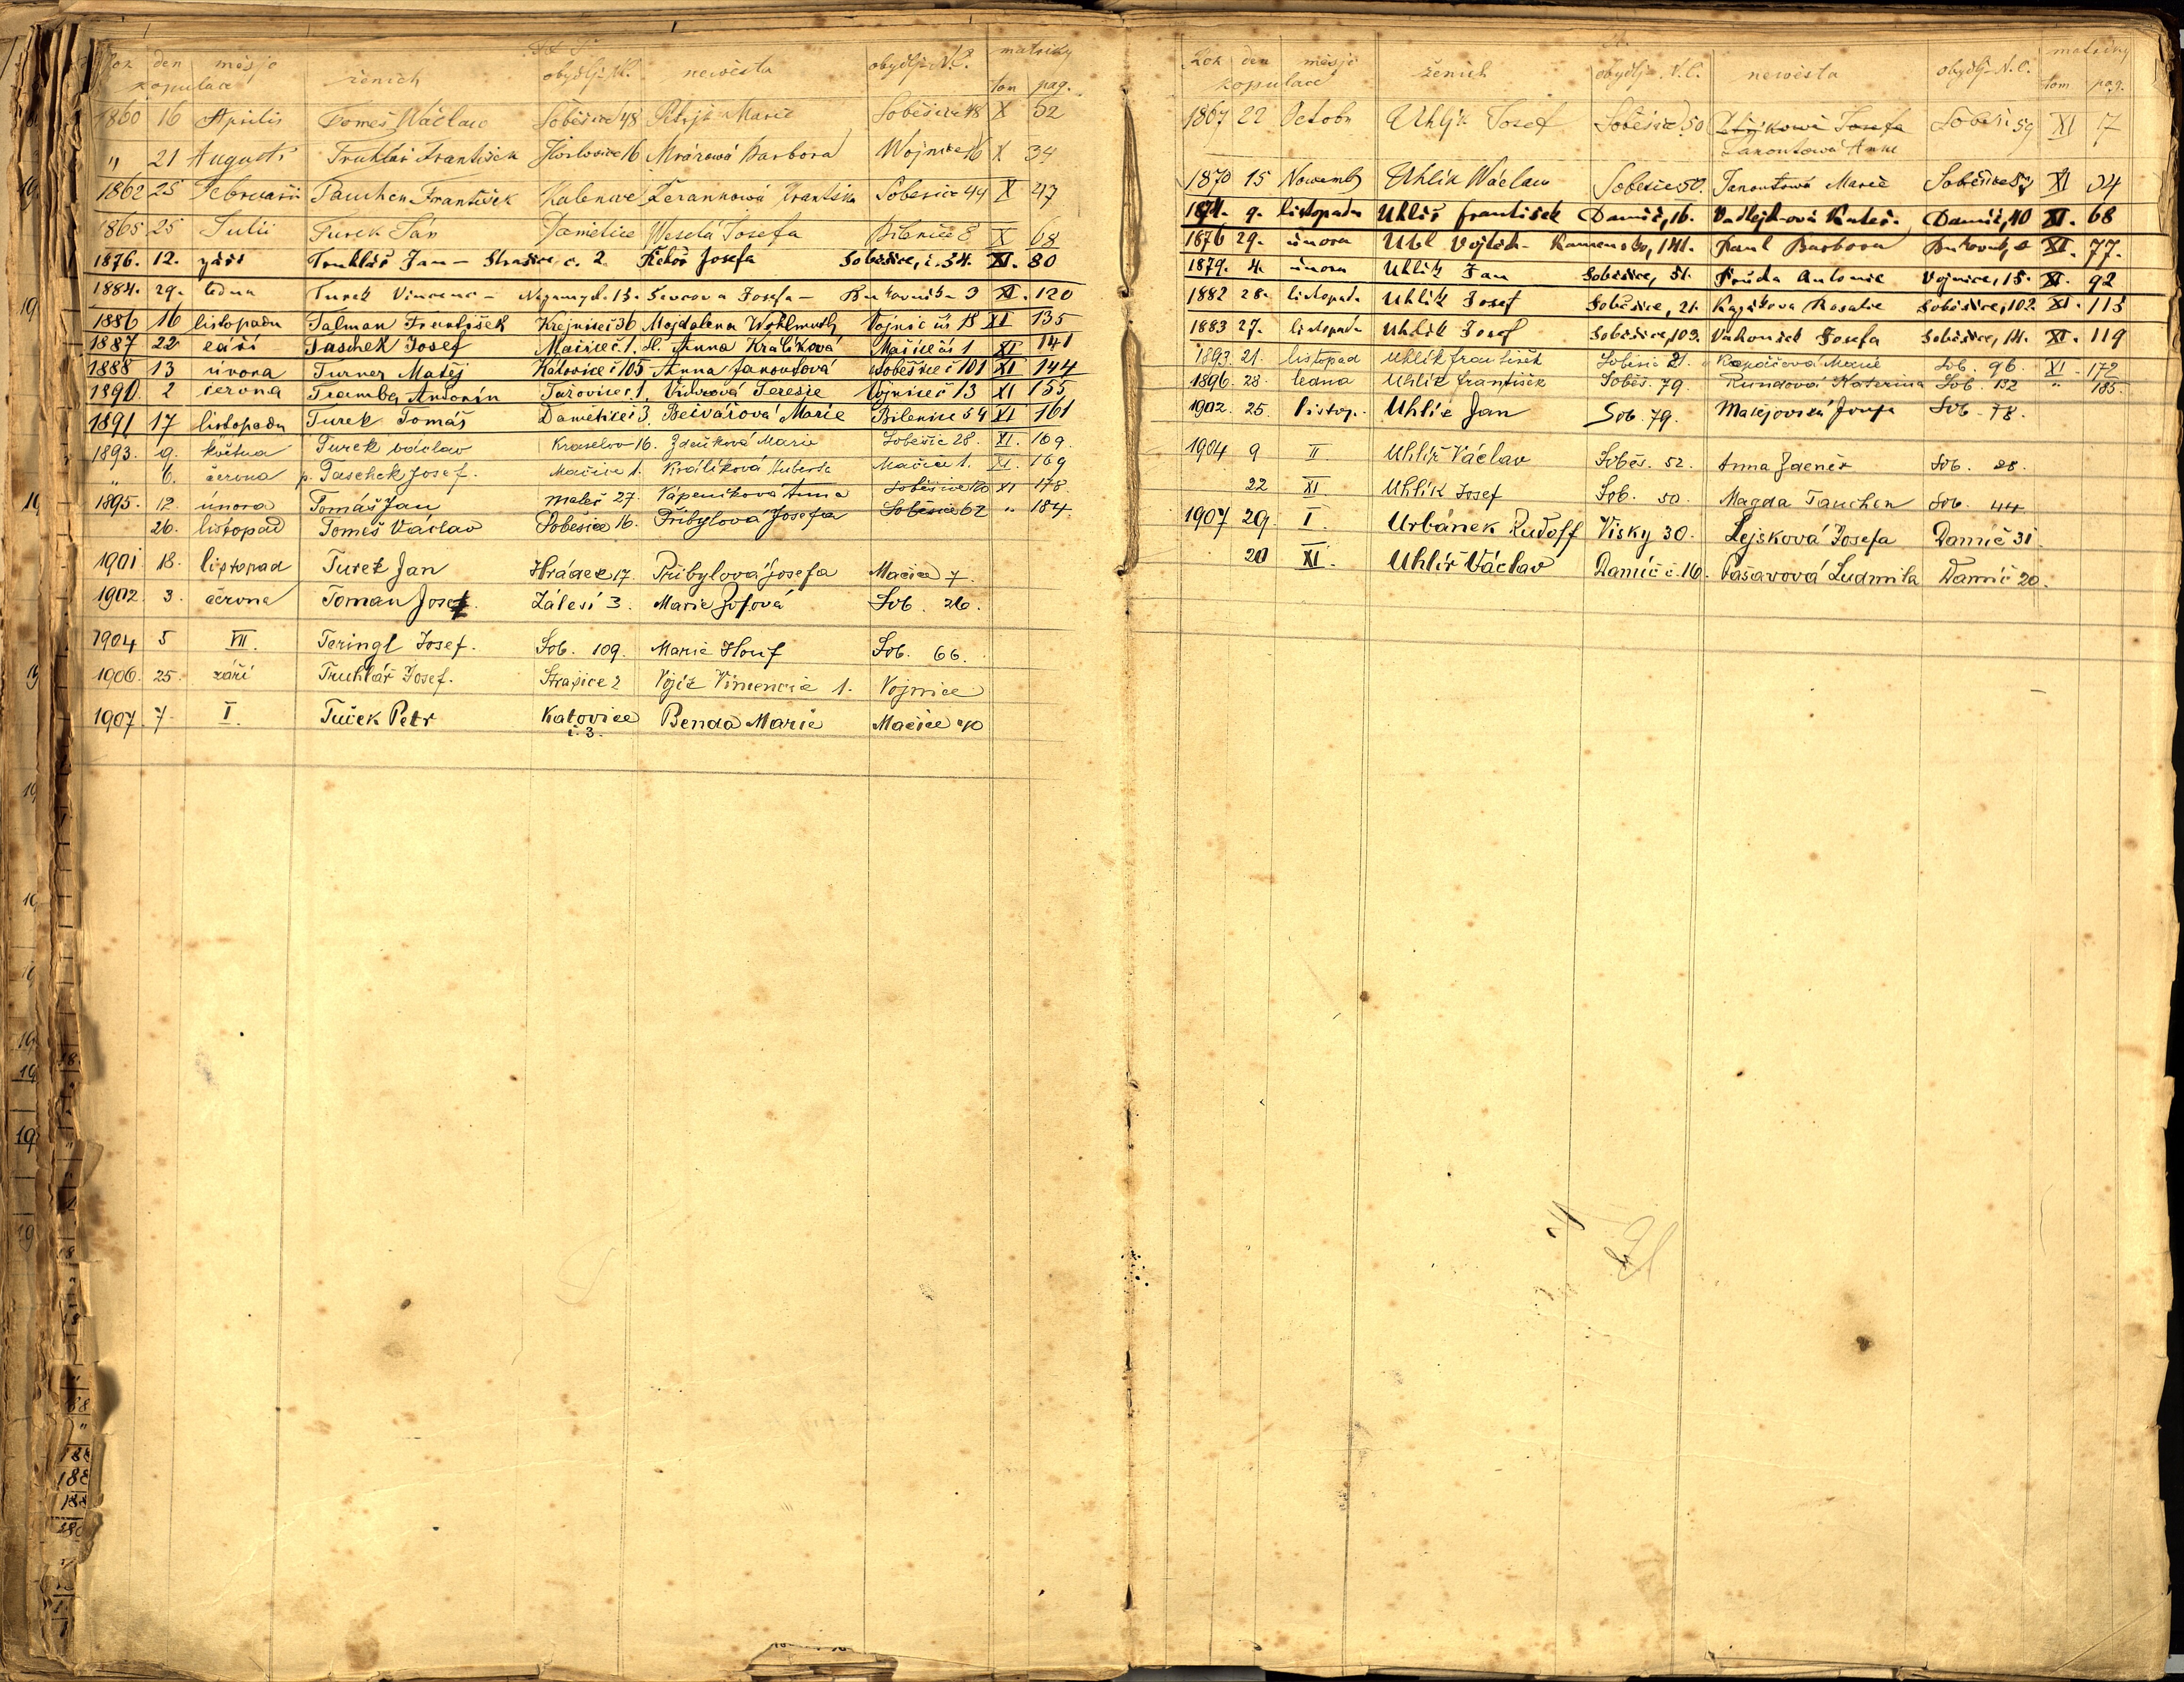 Rok den měsjc ženich obydlj N.C. newěsta obydlj N.C. matriky
kopulace tom pag.
1860 16 Aprilis Tomeš Wáclaw Soběšice 48 Petrjk Marie Soběšice 48 X 32
„ 21 Augusti Truhlář František 16 Mrázowá Barbora Wojnice 16 X 34
1862 25 Februarii Tauchen František Kalenice Františka Soběšice 44 X 47
1865 25 Julii Turek Jan Damětice Weselá Josefa Bilenice 8 X 68
1876. 12. září Truhlář Jan – Strašice, č. 2. Řehoř Josefa Soběšice, č. 54. XI. 80
1884. 29. ledna Turek Vincenc – Nezamysl. 15. Ševcova Josefa – Bukovník 3 XI. 120
1886 16 listopadu Talman František Krejnice č 36 Majdalena Wohlmuth Vojnic čís 18 XI 135
1887 22 září Taschek Josef Mačice č. 1. Anna Králíková Mačice čís 1 XI 141
1888 13 února Turner Matěj Katovice č 105 Anna Janoutová Soběšice č 101 XI 144
1890. 2 června Tramba Antonín Tažovice č. 1. Terezie Vojnice č 13 XI 155
1891 17 listopadu Turek Tomáš Damětice č 3. Bečvářová Marie Bilenice 54 XI 161
1893. 9. května Turek Václav Kraselov 16. Zdeňková Marie Soběšic 28. XI. 169.
„ 6. června p. Taschek Josef. Mačice 1. Králíková Huberta Mačice 1. XI. 169
1895. 12 února Tomáš Jan Maleč 27. Vápeníková Anna Soběšice XI 178.
26. listopad Tomeš Václav Soběšice 16. Přibylová Josefa Soběšice 62 „ 184.
1901 18. listopad Turek Jan Hrádek 17 Přibylová Josefa Mačice 7.
1902. 3. června Toman Josef. Zálesí 3. Marie Sob. 26.
1904 5 VII. Teringl Josef. Sob. 109. Marie Houf Sob. 66.
1906. 25. září Truhlář Josef. Strašice 2 Vincencie 1. Vojnice
1907. 7. I. Tuček Petr Katovice Benda Marie Mačice 40
č. 3.
Rok den měsjc ženich obydlj N.C. newěsta obydlj N.C.
kopulace tom pag.
1867 22 Octobr Uhljk Josef Soběšice 50 Petřjkowá Josefa 59 XI 17
Janoutowá Anna
1870 15 Nowemb Uhlík Wáclaw Soběšice 50. Janoutowá Marie Soběšice 57 XI 34
1874. 9. listopadu Uhlíř František Damíč, 16. Damíč, 40 XI. 68
1876 29. února Uhl Vojtěch – 141. Paul Barbora XI. 77.
1879. 4. února Uhlík Jan Soběšice, 51. Antonie Vojnice, 15. XI. 92
1882 28. listopadu Uhlík Josef Soběšice, 21. Rosalie Soběšice, 102. XI. 113
1883 27. listopadu Uhlík Josef Soběšice, 109. Josefa Soběšice, 14. XI. 119
1893. 21. listopad Uhlík František Soběšic 21. Marie Sob. 96. XI. 172
1896. 28. ledna Uhlík František Soběš. 79. Kundová Kateřina Sob. 132 „ 185.
1902. 25. listop. Uhlíř Jan Sob. 79. Matějovská Josefa Sob. 78.
1904 9 II Uhlíř Václav Soběš. 52. Anna Zdeněk Sob. 28.
22 XI. Uhlík Josef Sob. 50. Magda Tauchen Sob. 44.
1907 29. I. Urbánek Rudolf Visky 30. Lejsková Josefa Damíč 31
20 XI. Uhlíř Václav Damíč č. 16. Pašavová Ludmila Damíč 20.